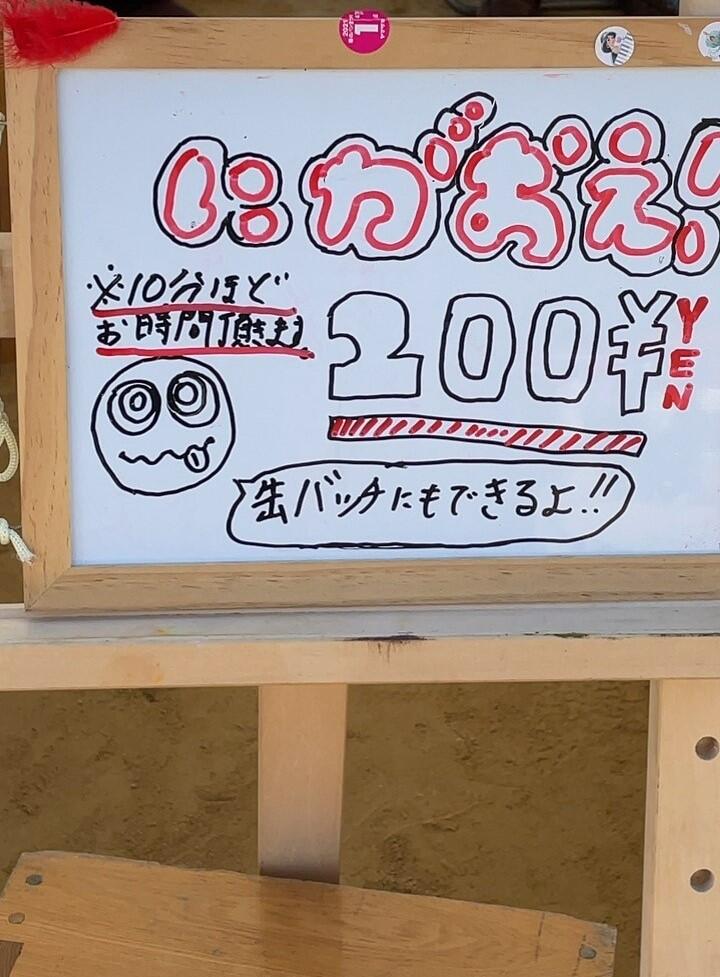 にがおえ!
※10分ほど
お時間頂きます
200¥
YEN
缶バッチにもできるよ!!
1